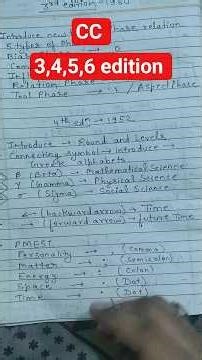 3rd edition → 1950
CC
3,4,5,6 edition
Introduce new phase relation
5 types of Ph
Relation Phase
Tool Phase → / Aspect Phase
4th edn → 1952
Introduce → Round and Levels
Connecting symbol → Introduce →
Greek alphabets
β (Beta) → Mathematical Science
γ (Gamma) → Physical Science
σ (Sigma) → Social Science
← (backward arrow) → Time
→ (forward arrow) → future Time
PMEST
Personality → , (comma)
Matter → ; (semicolon)
Energy → : (colon)
Space → . (Dot)
Time → (Dot)